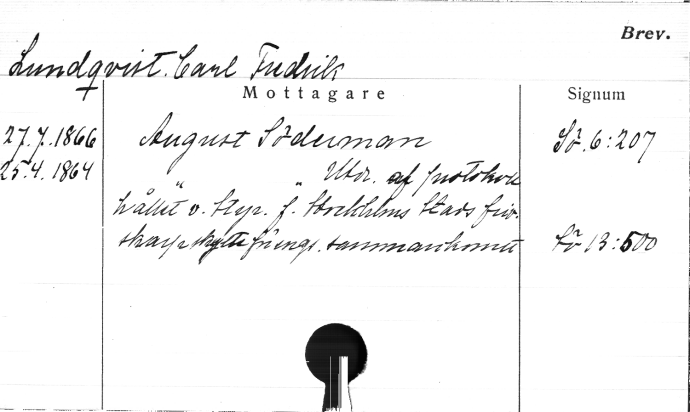 Brev.
Lundqvist. Carl Fredrik
Mottagare Signum
27.7.1866 August Söderman Sö. 6:207
25.4.1864 " " Utdr. af protokoll
hållet v. Styr. f. Stockholms Stads friv.
skarpskytteförings. sammankomst Sö 13:500